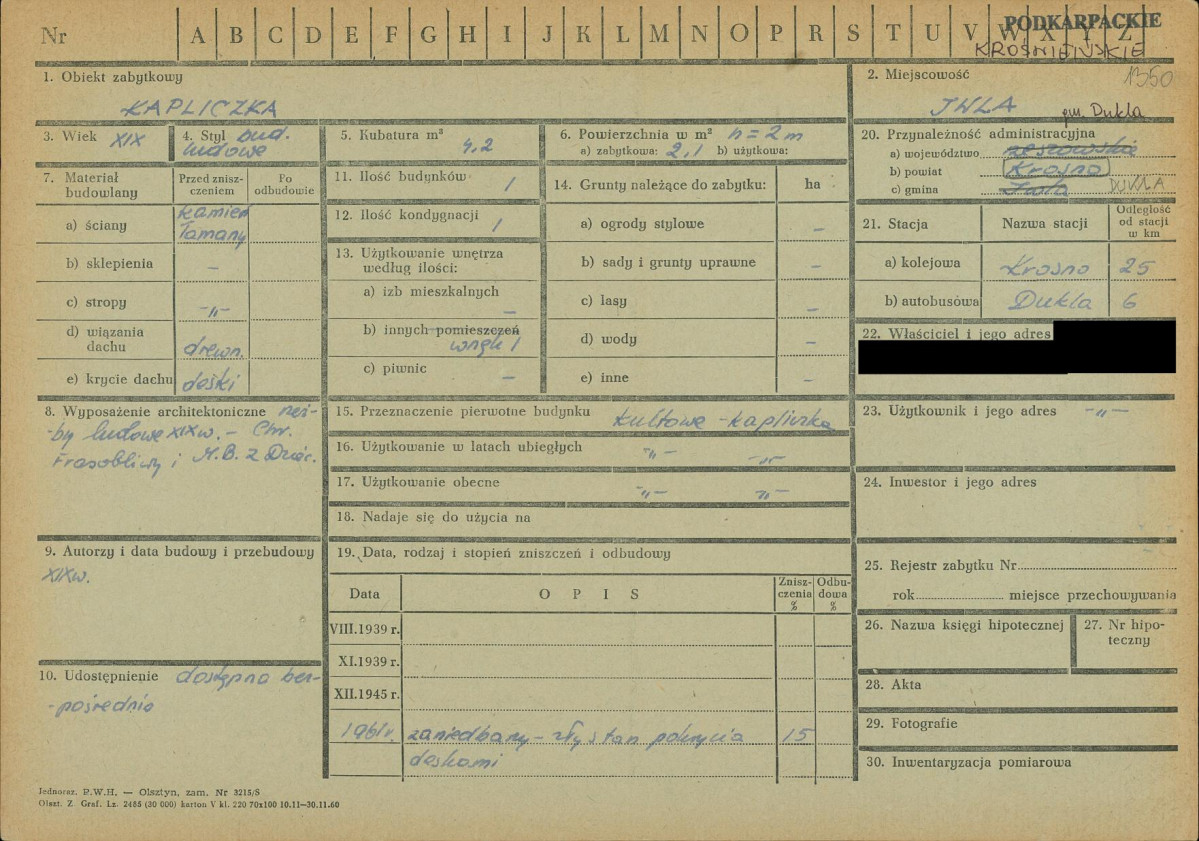 Nr A B C D E F G H I J K L M N O P R S T U V W X Y Z
PODKARPACKIE
KROŚNIEŃSKIE
1350
1. Obiekt zabytkowy
KAPLICZKA
2. Miejscowość
IWLA gm. Dukla
3. Wiek XIX
4. Styl bud. ludowe
5. Kubatura m³ 4,2
6. Powierzchnia w m² h = 2 m
a) zabytkowa: 2,1 b) użytkowa:
7. Materiał budowlany
Przed zniszczeniem
Po odbudowie
a) ściany kamień łamany
b) sklepienia –
c) stropy -„-
d) wiązania dachu drewn.
e) krycie dachu deski
8. Wyposażenie architektoniczne rzeź-
by ludowe XIX w. – Chr.
Frasobliwy i M.B. z Dziec.
9. Autorzy i data budowy i przebudowy
XIX w.
10. Udostępnienie dostępna bez-
-pośrednio
11. Ilość budynków 1
12. Ilość kondygnacji 1
13. Użytkowanie wnętrza według ilości:
a) izb mieszkalnych –
b) innych pomieszczeń
wnęk 1
c) piwnic –
14. Grunty należące do zabytku: ha
a) ogrody stylowe –
b) sady i grunty uprawne –
c) lasy –
d) wody –
e) inne –
15. Przeznaczenie pierwotne budynku kultowe - kapliczka
16. Użytkowanie w latach ubiegłych -„- -„-
17. Użytkowanie obecne -„- -„-
18. Nadaje się do użycia na
19. Data, rodzaj i stopień zniszczeń i odbudowy
Data OPIS Zniszczenia % Odbudowa %
VIII.1939 r.
XI.1939 r.
XII.1945 r.
1961 r. zaniedbany - zły stan pokrycia 15
deskami
20. Przynależność administracyjna
a) województwo rzeszowskie
b) powiat Krosno
c) gmina Iwla DUKLA
21. Stacja Nazwa stacji Odległość od stacji w km
a) kolejowa Krosno 25
b) autobusowa Dukla 6
22. Właściciel i jego adres
23. Użytkownik i jego adres -„-
24. Inwestor i jego adres
25. Rejestr zabytku Nr
rok miejsce przechowywania
26. Nazwa księgi hipotecznej
27. Nr hipoteczny
28. Akta
29. Fotografie
30. Inwentaryzacja pomiarowa
Jednoraz. P.W.H. — Olsztyn, zam. Nr 3215/S
Olszt. Z. Graf. Lz. 2485 (30 000) karton V kl. 220 70x100 10.11—30.11.60